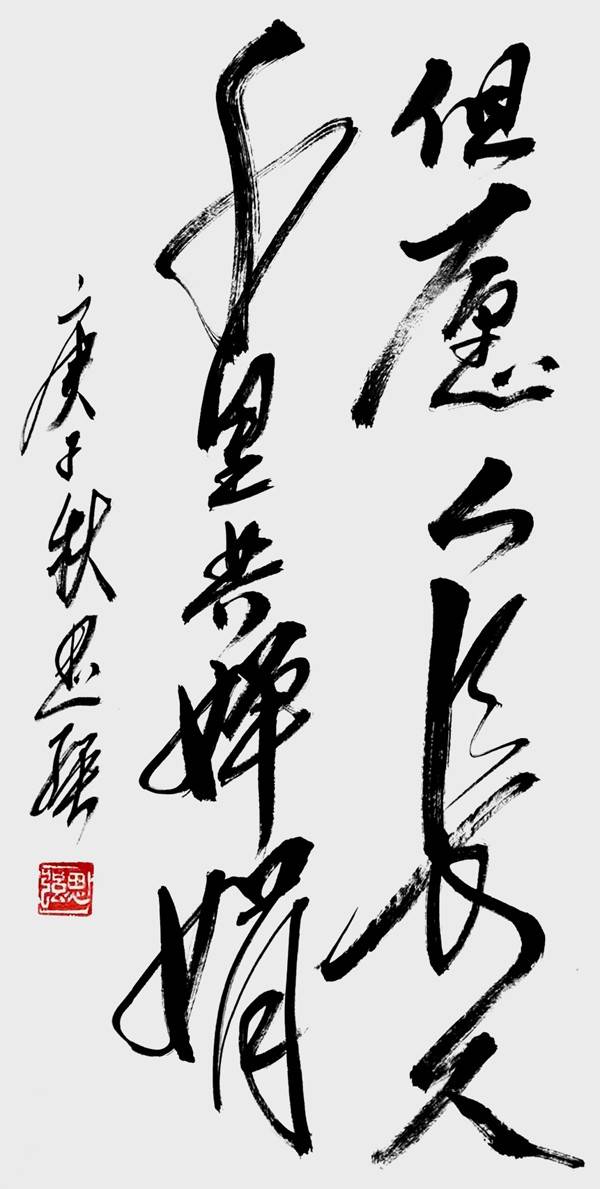 但愿人长久
千里共婵娟
庚子秋思强
思强